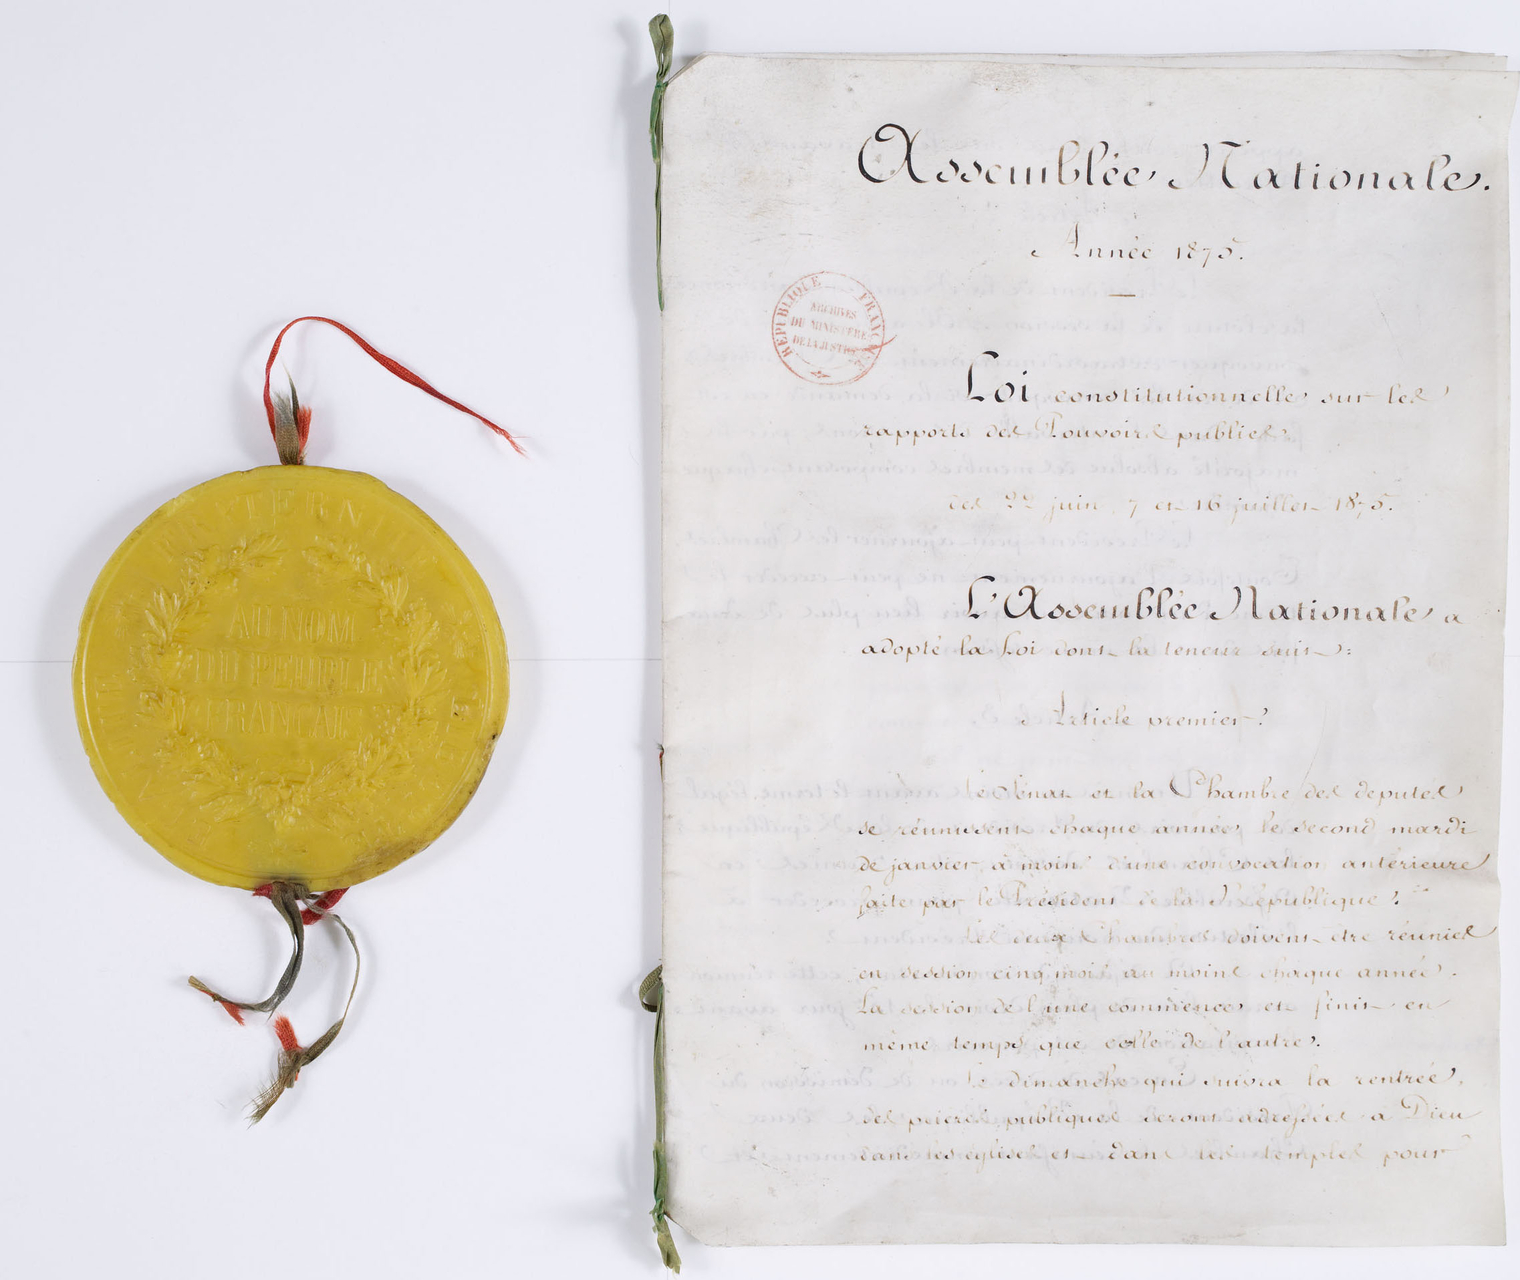 FRATERNITE
AU NOM
DU PEUPLE
FRANCAIS
Assemblée Nationale.
Année 1875.
RÉPUBLIQUE FRANÇAISE
ARCHIVES
DU MINISTÈRE
DE LA JUSTICE
Loi constitutionnelle sur les
rapports des Pouvoirs publics
des 22 juin, 7 et 16 juillet 1875.
L'Assemblée Nationale a
adopté la Loi dont la teneur suit :
Article premier.
Le Sénat et la Chambre des députés
se réunissent chaque année, le second mardi
de janvier, à moins d'une convocation antérieure
faite par le Président de la République.
Les deux Chambres doivent être réunies
en session cinq mois au moins chaque année.
La session de l'une commence et finit en
même temps que celle de l'autre.
Le dimanche qui suivra la rentrée,
des prières publiques seront adressées à Dieu
dans les églises et dans les temples pour